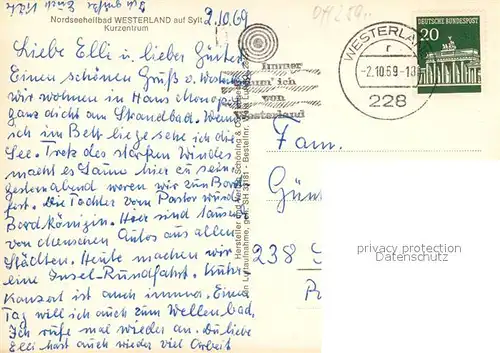 Nordseeheilbad WESTERLAND auf Sylt
Kurzentrum
2.10.69
Liebe Elli u. lieber Günter
Einen schönen Gruß v. Westerland
wir wohnen in Haus Monopol
ganz dicht am Strandbad. Wenn
ich im Bett liege sehe ich die
See. Trotz des starken Windes
macht es Laune hier zu sein.
gestern abend waren wir zum Bord
fest. Die Tochter vom Pastor wurde
Bordkönigin. Hier sind tausen
von chensen Autos aus allen
Städten. Heute machen wir
eine Insel-Rundfahrt. Kur
Konzert ist auch immer. Einen
Tag will ich auch zum Wellenbad.
Ich rufe mal wieder an. Du liebe
Elli hast auch wieder viel Arbeit
immer
von
Westerland
WESTERLAND
-2.10.69-13
228
DEUTSCHE BUNDESPOST
20
Fam.
Gün
238
privacy protection
Datenschutz